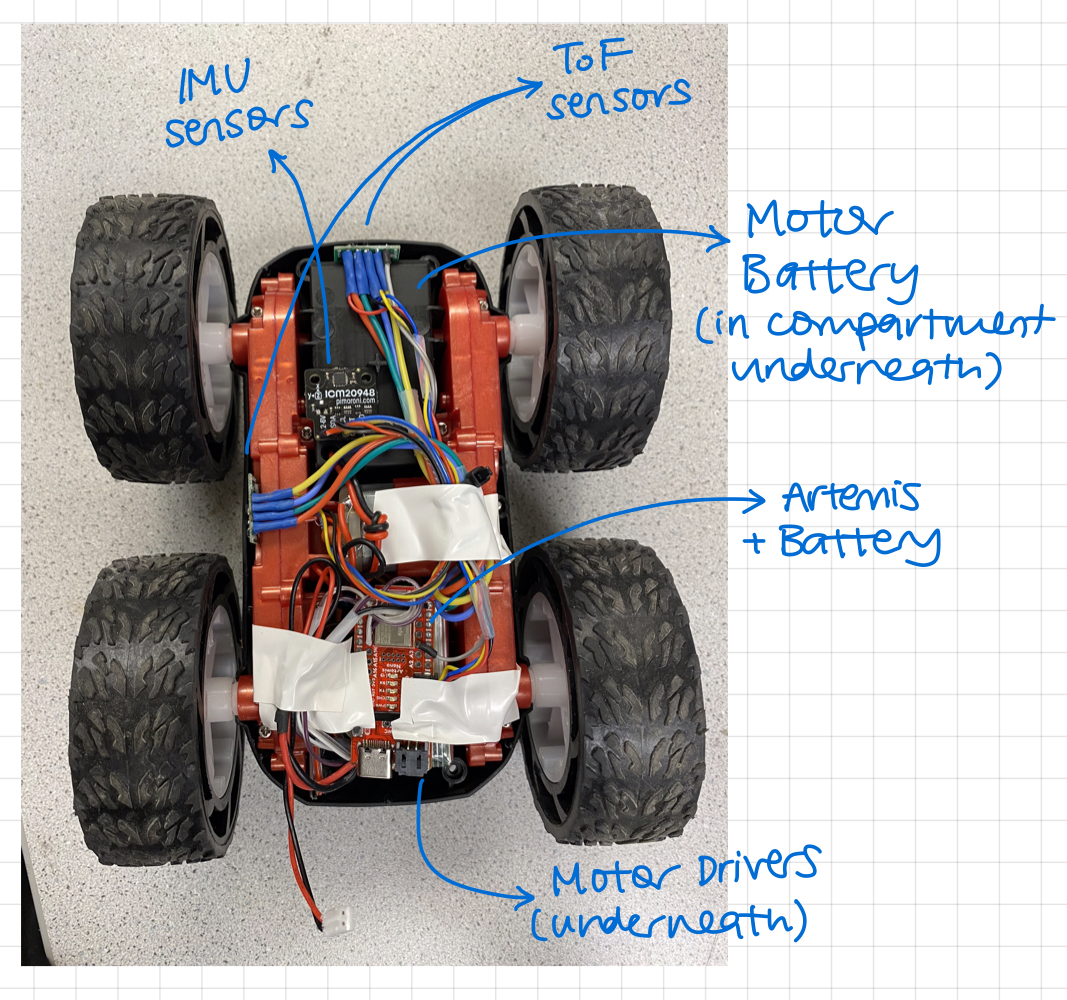 IMU
sensors
ToF
sensors
Motor
Battery
(in compartment
underneath)
ICM20948
pimoroni.com
Artemis
+ Battery
Artemis
Nano
Motor Drivers
(underneath)